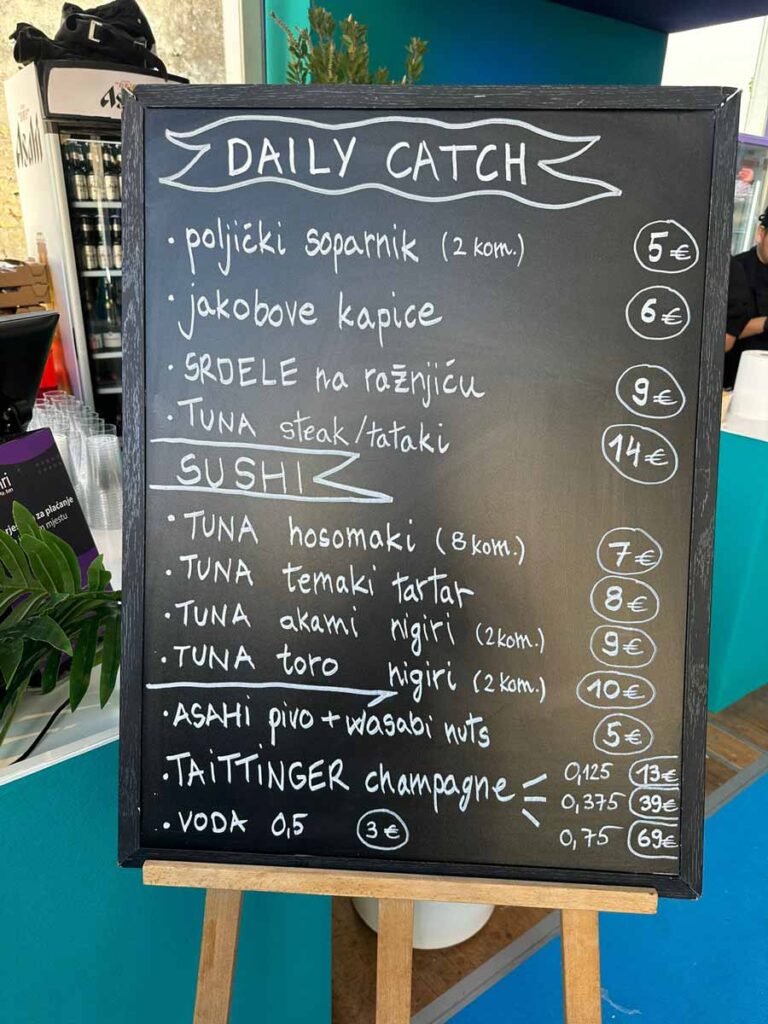 Asahi
DAILY CATCH
• poljički soparnik (2 kom.) 5€
• jakobove kapice 6€
• SRDELE na ražnjiću 9€
• TUNA steak/tataki 14€
SUSHI
• TUNA hosomaki (8 kom.) 7€
• TUNA temaki tartar 8€
• TUNA akami nigiri (2 kom.) 9€
• TUNA toro nigiri (2 kom.) 10€
• ASAHI pivo + wasabi nuts 5€
• TAITTINGER champagne 0,125 13€
0,375 39€
0,75 69€
• VODA 0,5 3€
za plaćanje
mjestu